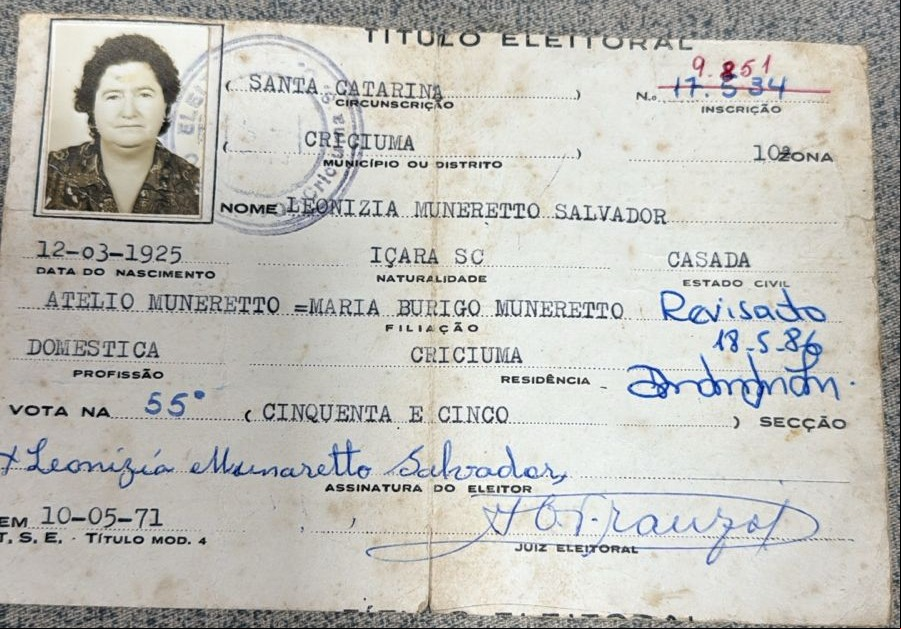 TÍTULO ELEITORAL
9.851
( SANTA CATARINA ) N.o 17.534
CIRCUNSCRIÇÃO INSCRIÇÃO
( CRICIUMA ) 10ª ZONA
MUNICÍPIO OU DISTRITO
NOME LEONIZIA MUNERETTO SALVADOR
12-03-1925 IÇARA SC CASADA
DATA DO NASCIMENTO NATURALIDADE ESTADO CIVIL
ATELIO MUNERETTO =MARIA BURIGO MUNERETTO Revisado
FILIAÇÃO 18.5.86
DOMESTICA CRICIUMA
PROFISSÃO RESIDÊNCIA
VOTA NA 55° ( CINQUENTA E CINCO ) SECÇÃO
x Leonizia Munaretto Salvador
ASSINATURA DO ELEITOR
EM 10-05-71
T. S. E. - TÍTULO MOD. 4 JUIZ ELEITORAL
TÍTULO ELEITORAL